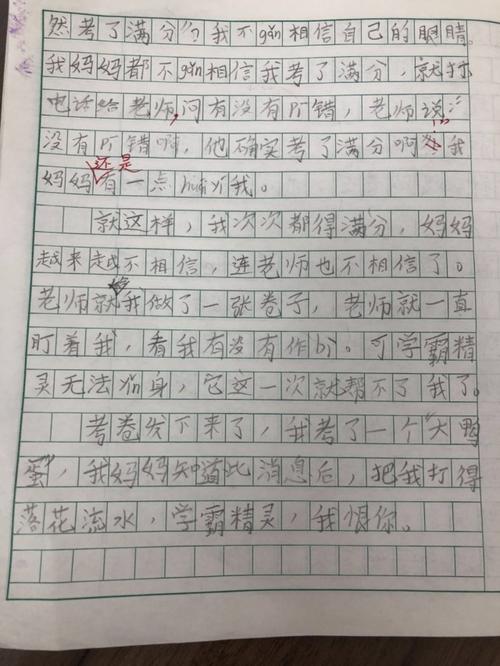 然考了满分”?我不gǎn相信自己的眼睛。
我妈妈都不gǎn相信我考了满分，就打
电话给老师，问有没有pī错，老师说：“
没有pī错啊，他确实考了满分啊。”我
妈妈还是有一点huái yí我。
就这样，我次次都得满分，妈妈
越来越不相信，连老师也不相信了。
老师就给我做了一张卷子，老师就一直
盯着我，看我有没有作bì。可学霸精
灵无法yǐn身，它这一次就帮不了我了。
考卷发下来了，我考了一个“大鸭
蛋”，我妈妈知道此消息后，把我打得
落花流水，学霸精灵，我恨你。